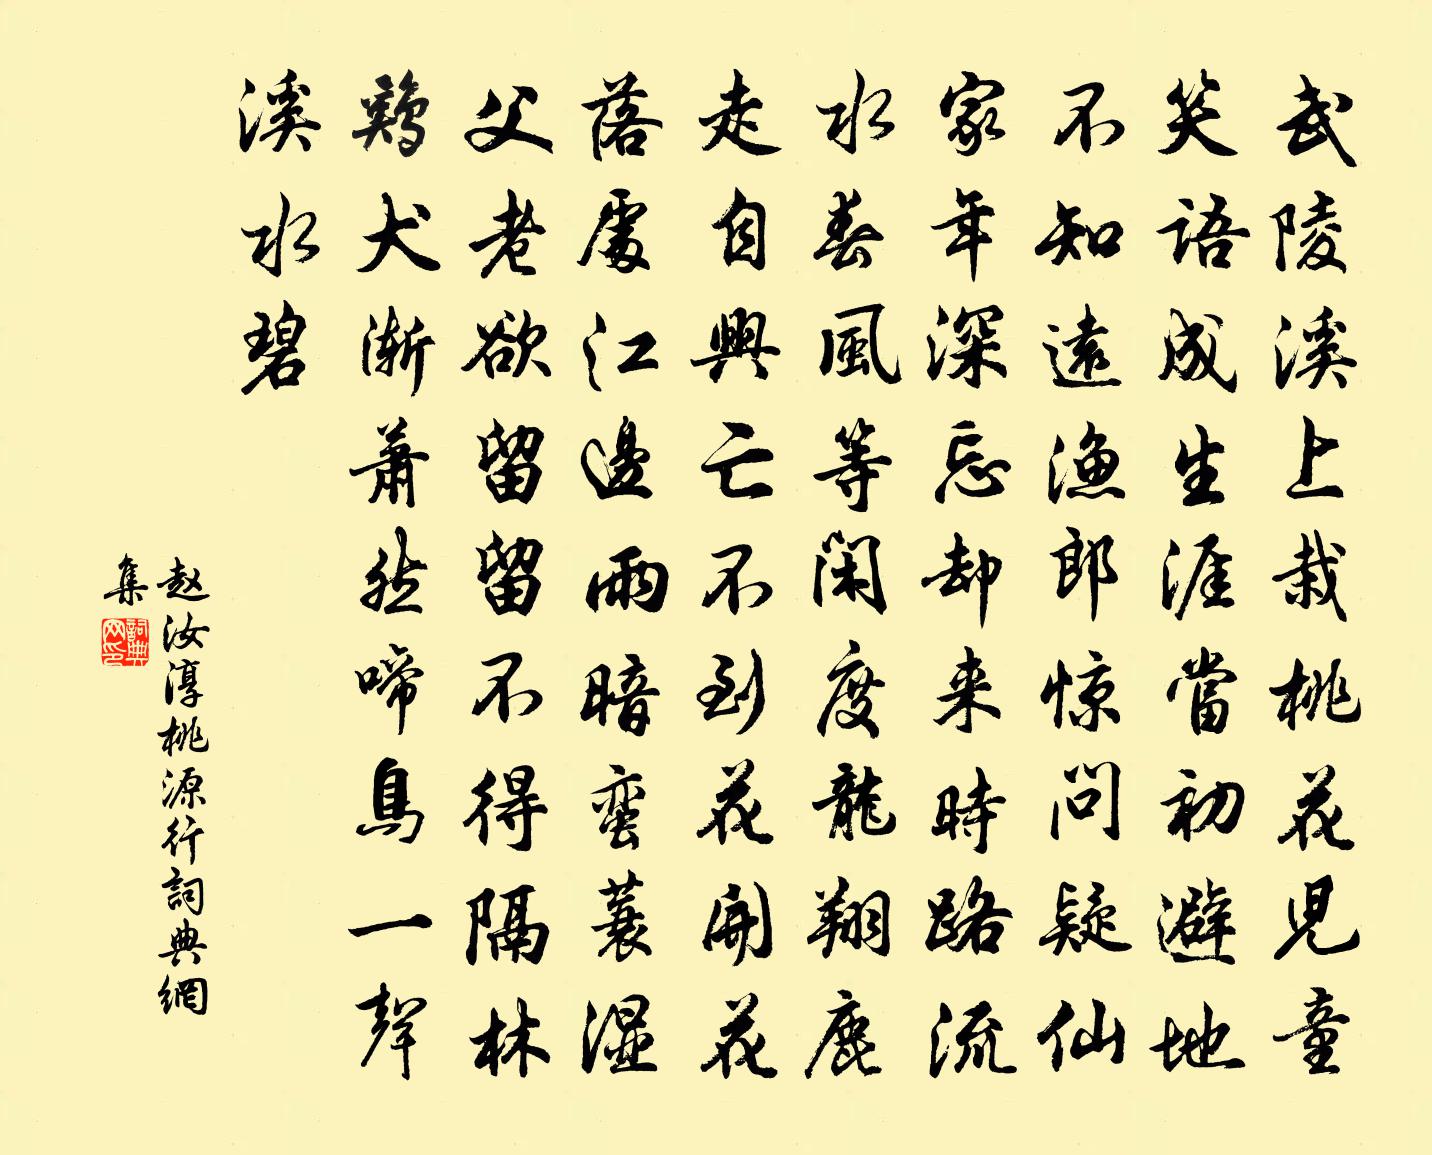 武陵溪上栽桃花兒童
笑語成生涯當初避地
不知遠漁郎惊問疑仙
家年深忘却来時路流
水春風等閑度龍翔鹿
走自興亡不到花開花
落處江邊雨暗蛮蓑湿
父老欲留留不得隔林
鷄犬漸蕭然啼鳥一聲
溪水碧
赵汝淳桃源行詞典網
集
詞典
网印